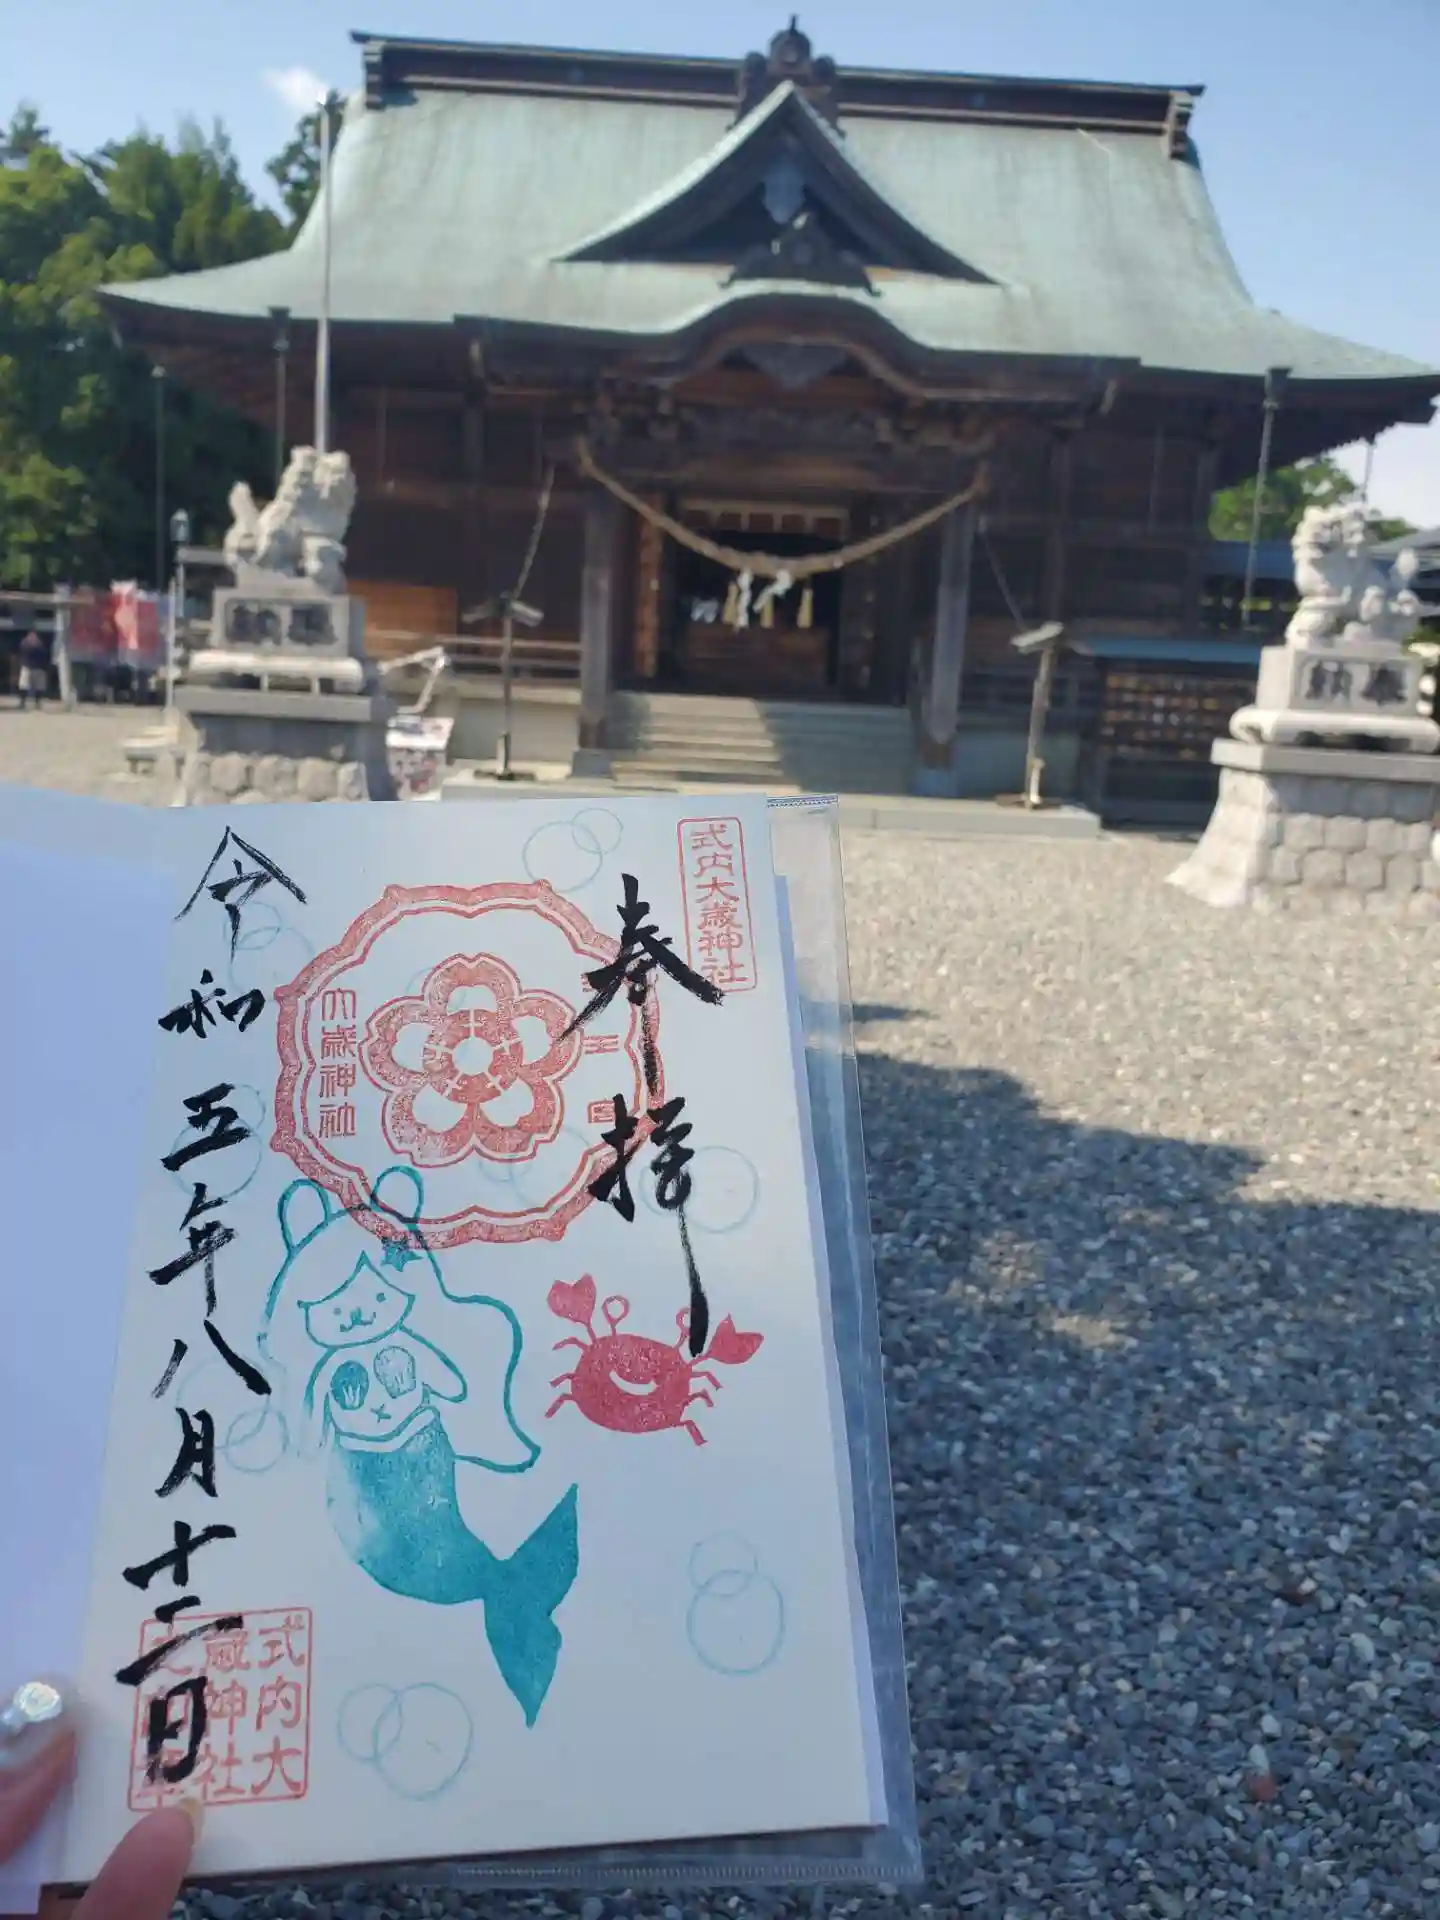 奉献
奉献
式内大歳神社
奉拝
三
国
大歳神社
令和五年八月十二日
式内大
歳神社